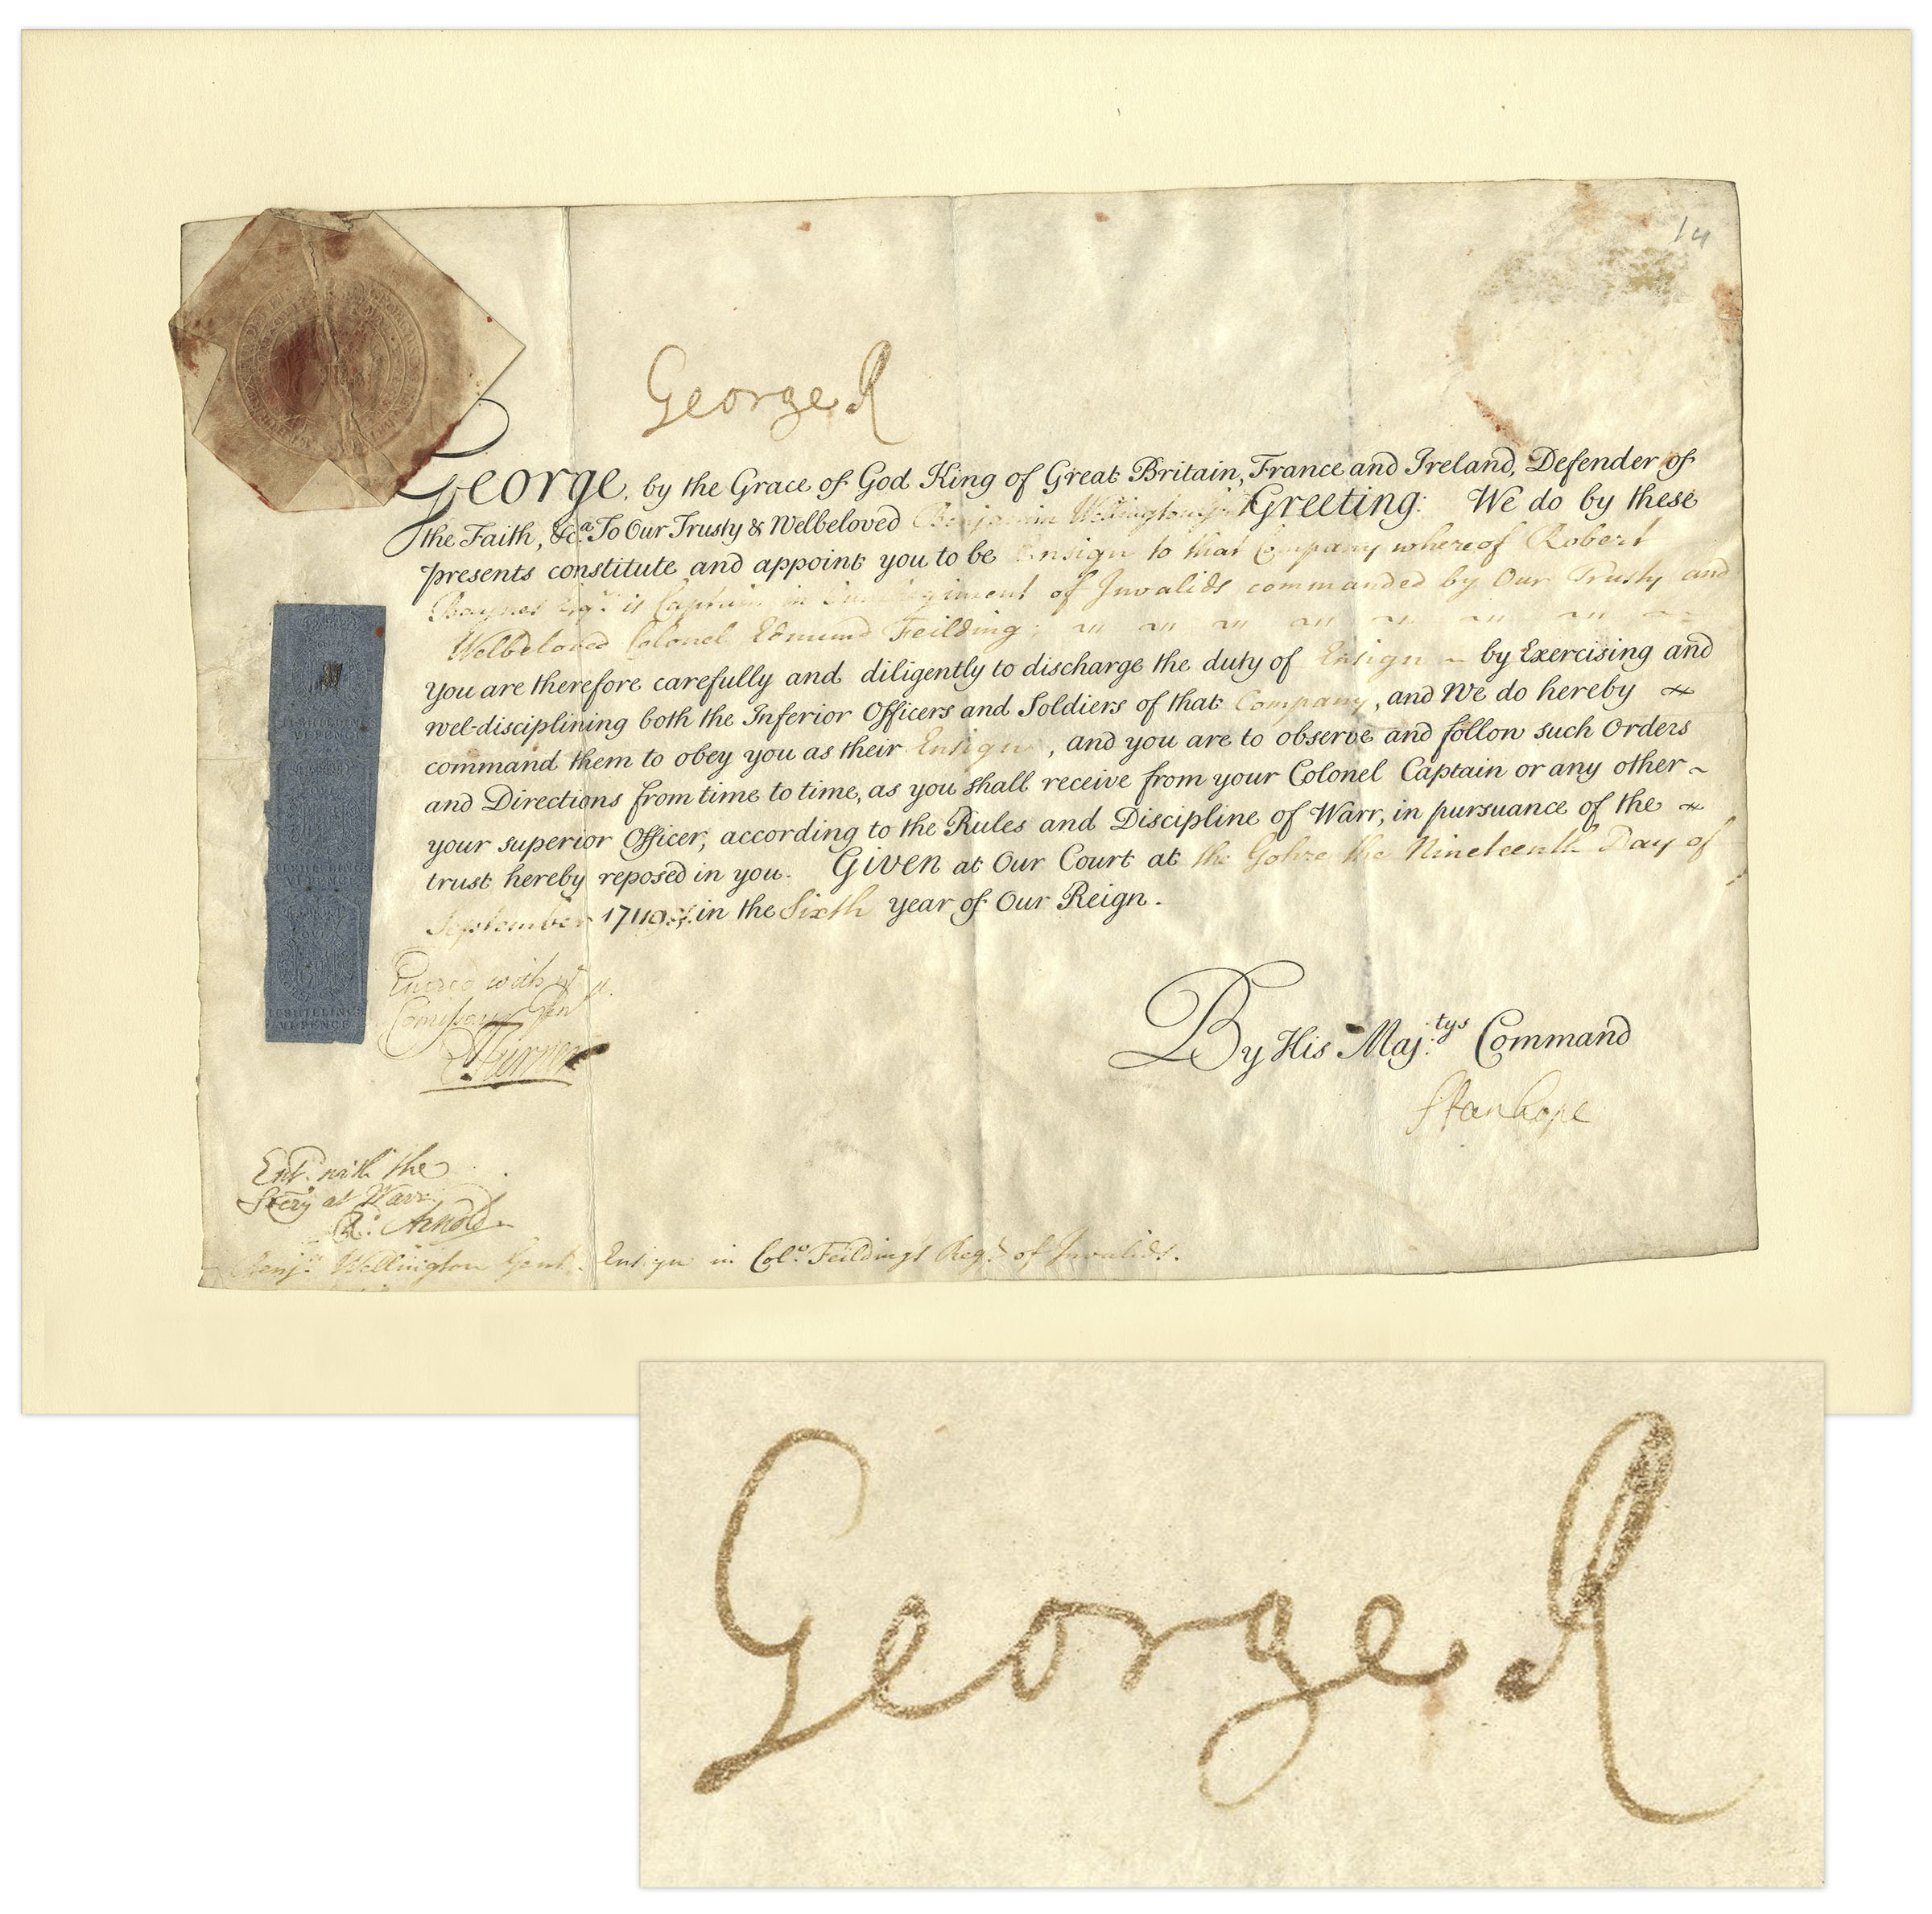 14
George R
George, by the Grace of God King of Great Britain, France and Ireland, Defender of
the Faith, &c.a To Our Trusty & Welbeloved Benjamin Wellington Greeting: We do by these
presents constitute and appoint you to be Ensign to that Company whereof Robert
is Captain in Regiment of Invalids commanded by Our Trusty and
Welbeloved Colonel Edmund Feilding;
You are therefore carefully and diligently to discharge the duty of Ensign by Exercising and
wel-disciplining both the Inferior Officers and Soldiers of that Company, and We do hereby
command them to obey you as their Ensign, and you are to observe and follow such Orders
and Directions from time to time, as you shall receive from your Colonel Captain or any other
your superior Officer, according to the Rules and Discipline of Warr, in pursuance of the
trust hereby reposed in you. Given at Our Court at the Gohre the Nineteenth Day of
September 1719 in the Sixth year of Our Reign.
VI PENCE
VI SHILLINGS
VI PENCE
Entred with ye
Comissary Genll
By His Maj:tys Command
Stanhope
Entd. with the
Secry at Warr
Rd: Arnold
Benja. Wellington Gent. Ensign in Colo. Feilding's Regt. of Invalids.
George R